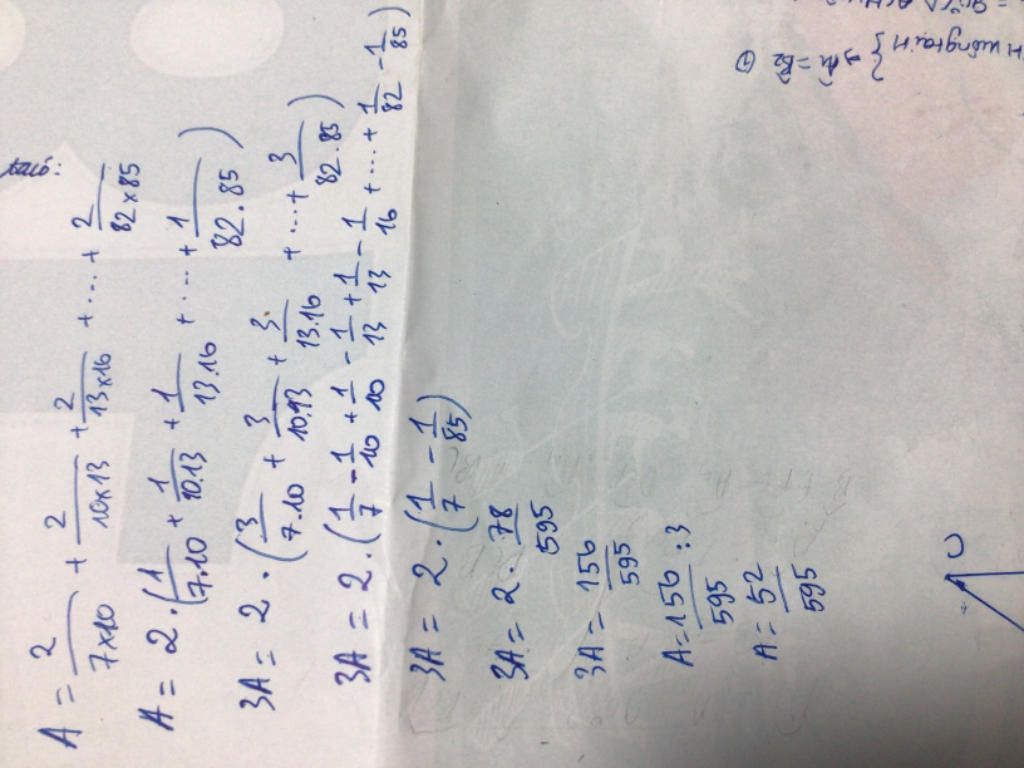 ta có:
A = 2/7x10 + 2/10x13 + 2/13x16 + .... + 2/82x85
A = 2.(1/7.10 + 1/10.13 + 1/13.16 + ... + 1/82.85)
3A = 2.(3/7.10 + 3/10.13 + 3/13.16 + ... + 3/82.85)
3A = 2.(1/7 - 1/10 + 1/10 - 1/13 + 1/13 - 1/16 + .... + 1/82 - 1/85)
3A = 2.(1/7 - 1/85)
3A = 2.78/595
3A = 156/595
A = 156/595 :3
A = 52/595
C